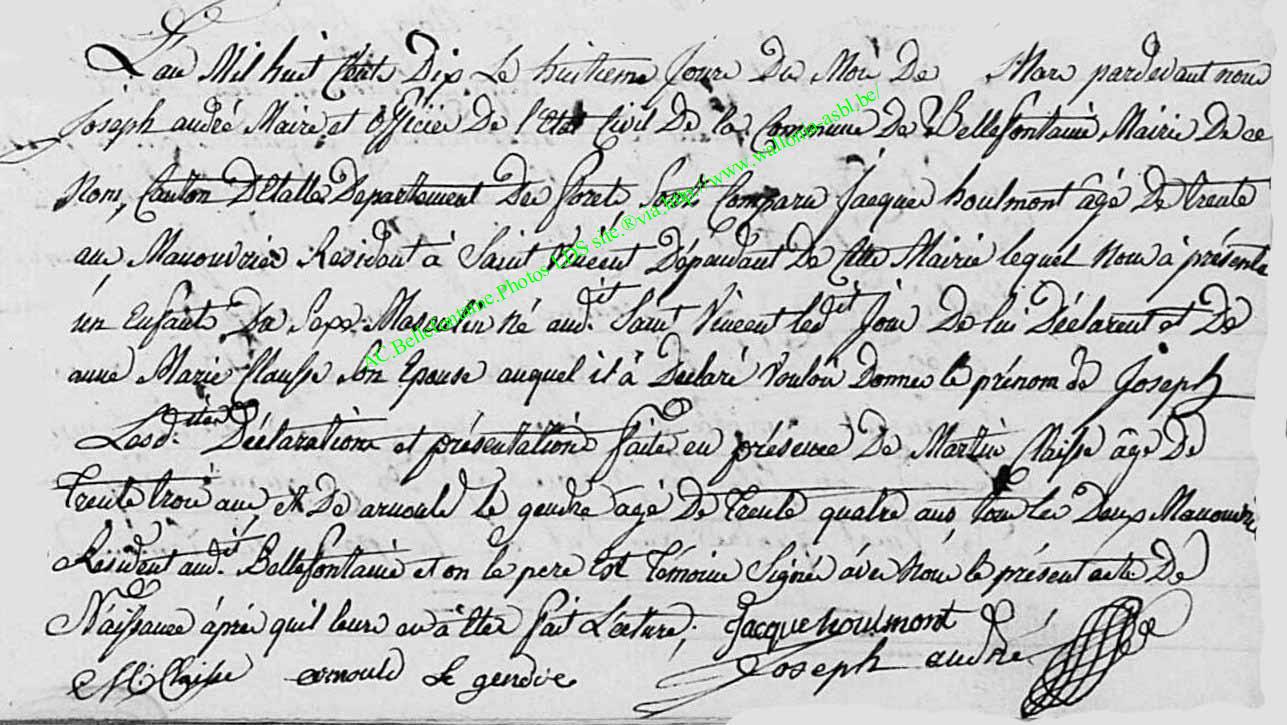 L'an Mil huit Cents Dix Le huitieme Jour Du Moi De Mars pardevant nous
Joseph andré Maire et Officier De l'Etat Civil De la Commune De Bellefontaine Mairie De ce
Nom, Canton D'Etalle Departement Des Forets Sont Comparu Jacque houlmont âgé De trente
ans Manouvrier Resident à Saint Vincent Dépendant De Cette Mairie lequel Nous à présenté
un Enfant Du Sexe Masculin Né aud.it Saint Vincent ledit Jour De lui Déclarent et De
anne Marie Clausse Son Epouse auquel il à Déclaré Vouloir Donner le prénom de Joseph
Lesd.ittes Déclaration et présentation faite en présence De Martin Claisse âgé De
Trente trois ans et De arnould le gendre agé De Trente quatre ans, tous les Deux Manouvriers
Résident aud.it Bellefontaine et on le pere et Témoins Signé avec Nous le présent acte De
Naissance áprés quil leurs en à Eter fait Lecture;
Jacque houlmont
M. Claisse arnould le gendre Joseph andré
AC.Bellefontaine.Photos LDS site.®via.http://www.wallonia-asbl.be/